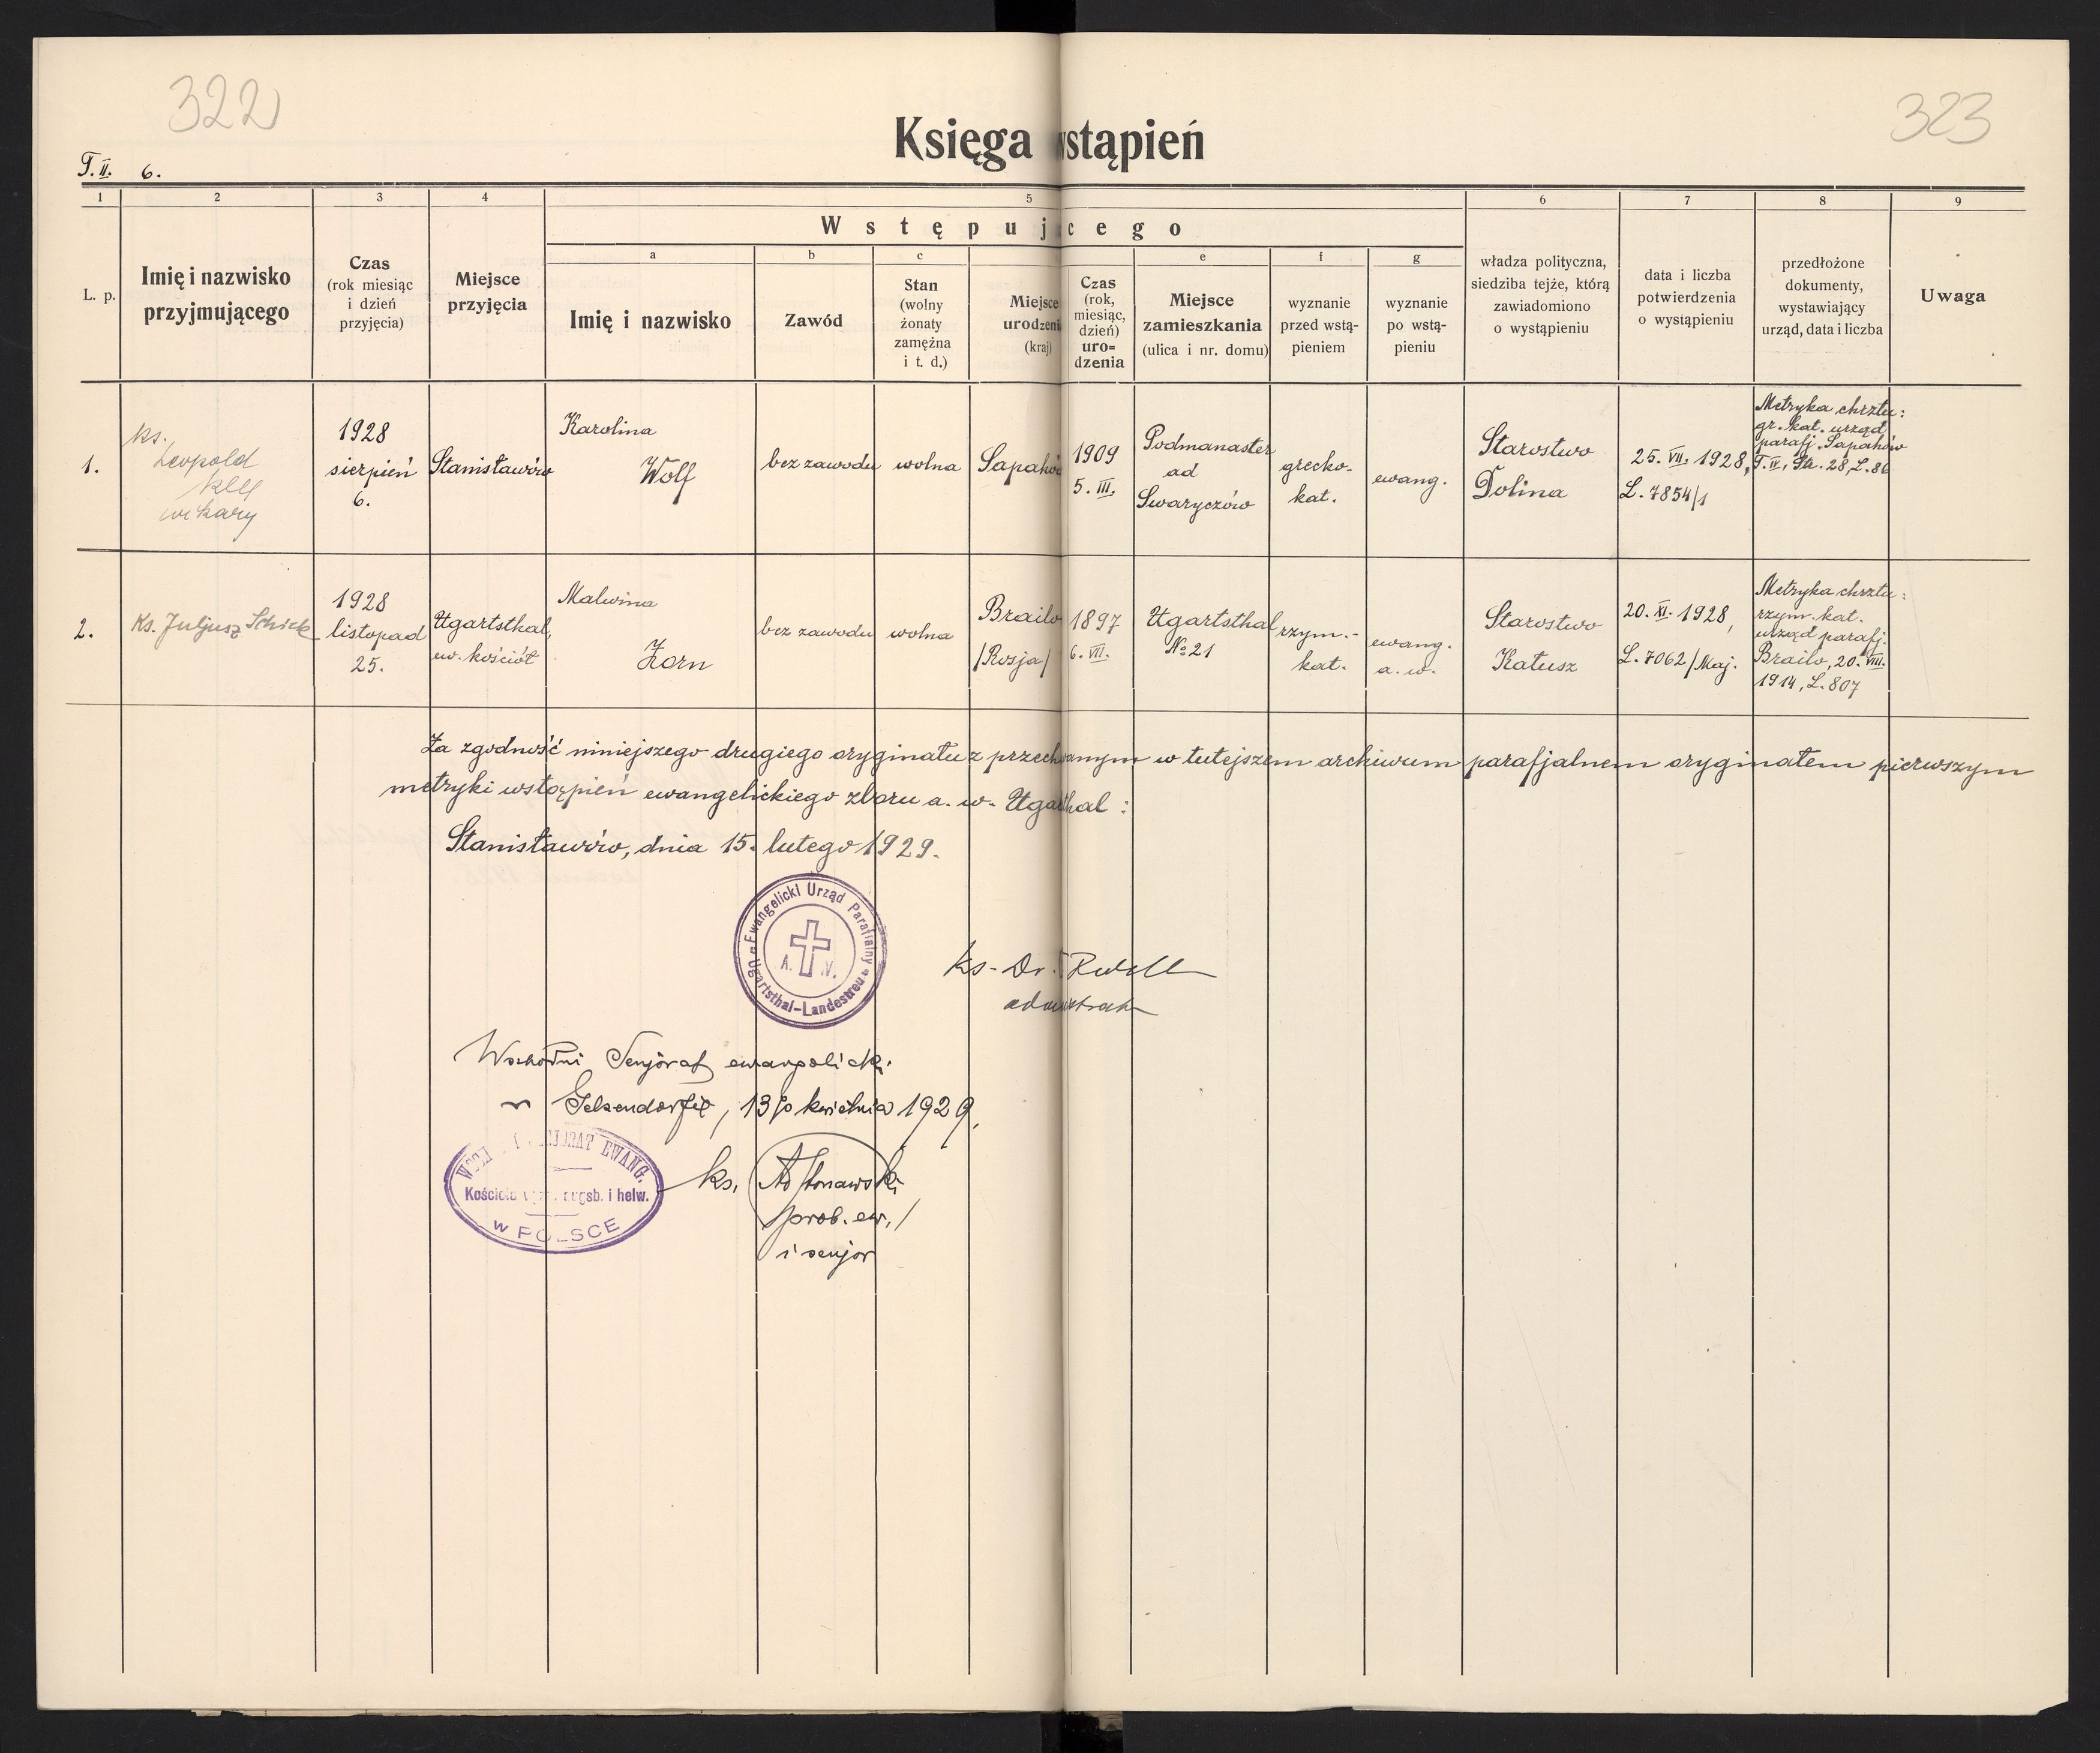 322
323
Księga wstąpień
T. II. 6.
1 2 3 4 5 6 7 8 9
Wstępującego
L. p.
Imię i nazwisko
przyjmującego
Czas
(rok miesiąc
i dzień
przyjęcia)
Miejsce
przyjęcia
a
Imię i nazwisko
b
Zawód
c
Stan
(wolny
żonaty
zamężna
i t. d.)
Miejsce
urodzeni
(kraj)
Czas
(rok,
miesiąc,
dzień)
uro=
dzenia
e
Miejsce
zamieszkania
(ulica i nr. domu)
f
wyznanie
przed wstą-
pieniem
g
wyznanie
po wstą-
pieniu
władza polityczna,
siedziba tejże, którą
zawiadomiono
o wystąpieniu
data i liczba
potwierdzenia
o wystąpieniu
przedłożone
dokumenty,
wystawiający
urząd, data i liczba
Uwaga
1.
ks.
Leopold
wikary
1928
sierpień
6.
Stanisławów
Karolina
Wolf
bez zawodu
wolna
Sapahów
1909
5. III.
Podmanaster
ad
Swaryczów
grecko-
kat.
ewang.
Starostwo
Dolina
25. VII. 1928,
L. 7854/1
Metryka chrztu:
gr. kat. urząd
parafj. Sapahów
T. IV, Str. 28, L. 86
2.
Ks. Juljusz Schick
1928
listopad
25.
Ugartsthal,
ew. kościół
Malwina
Zorn
bez zawodu
wolna
Brailo
/Rosja/
1897
6. VII.
Ugartsthal
№ 21
rzym.-
kat.
ewang.
a. w.
Starostwo
Kałusz
20. XI. 1928,
L. 7062/Maj.
Metryka chrztu:
rzym. kat.
urząd parafj.
Brailo, 20. VIII.
1914, L. 807
Za zgodność niniejszego drugiego oryginału z przechowanym w tutejszem archiwum parafjalnem oryginałem pierwszym
metryki wstąpień ewangelickiego zboru a. w. Ugarthal :
Stanisławów, dnia 15. lutego 1929.
Ewangelicki Urząd Parafialny
A. V.
Ugartsthal-Landestreu
ks. Dr.
Wschodni Senjorat ewangelicki
w Gelsendorfie, 13go kwietnia 1929.
RAT EWANG.
augsb. i helw.
w POLSCE
ks.
prob. ew.
i senjor